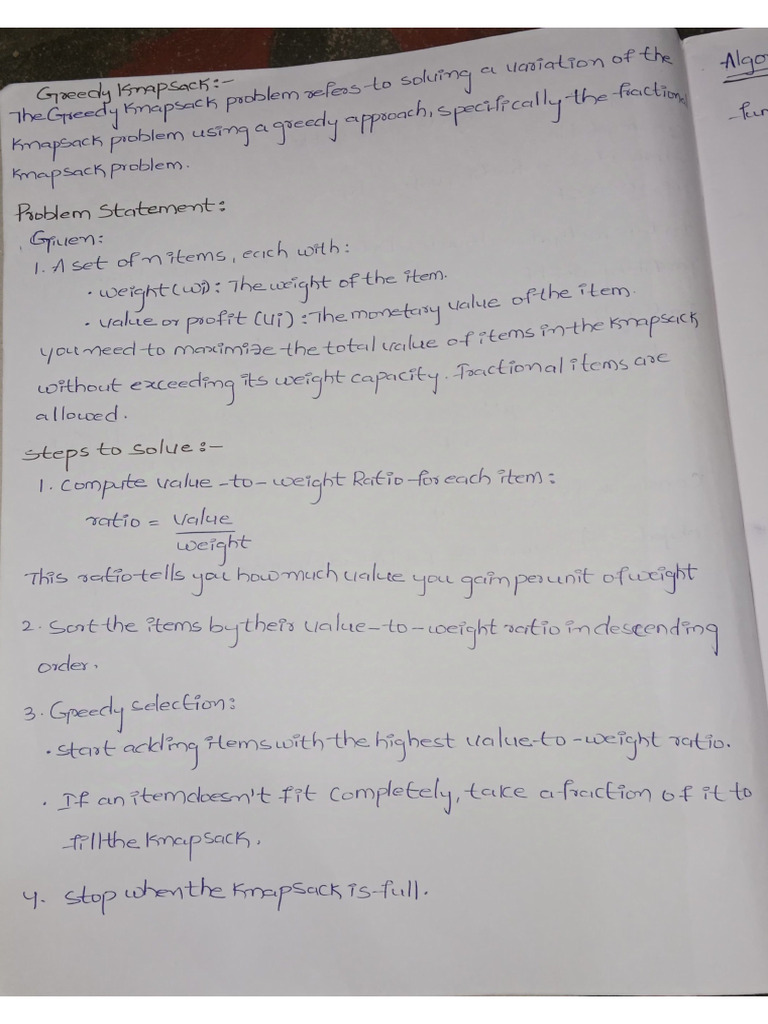 Greedy Knapsack:-
The Greedy Knapsack problem refers to solving a variation of the
Knapsack problem using a greedy approach, specifically the fraction
Knapsack problem.
Problem Statement:
Given:
1. A set of n items, each with:
• weight (wi): The weight of the item.
• value or profit (Vi): The monetary value of the item.
you need to maximize the total value of items in the Knapsack
without exceeding its weight capacity. Fractional items are
allowed.
Steps to solve:-
1. Compute value-to-weight Ratio for each item:
ratio = value
weight
This ratio tells you how much value you gain per unit of weight
2. Sort the items by their value-to-weight ratio in descending
order.
3. Greedy selection:
• start adding items with the highest value-to-weight ratio.
• If an item doesn't fit completely, take a fraction of it to
fill the Knapsack.
4. Stop when the Knapsack is full.
Algo